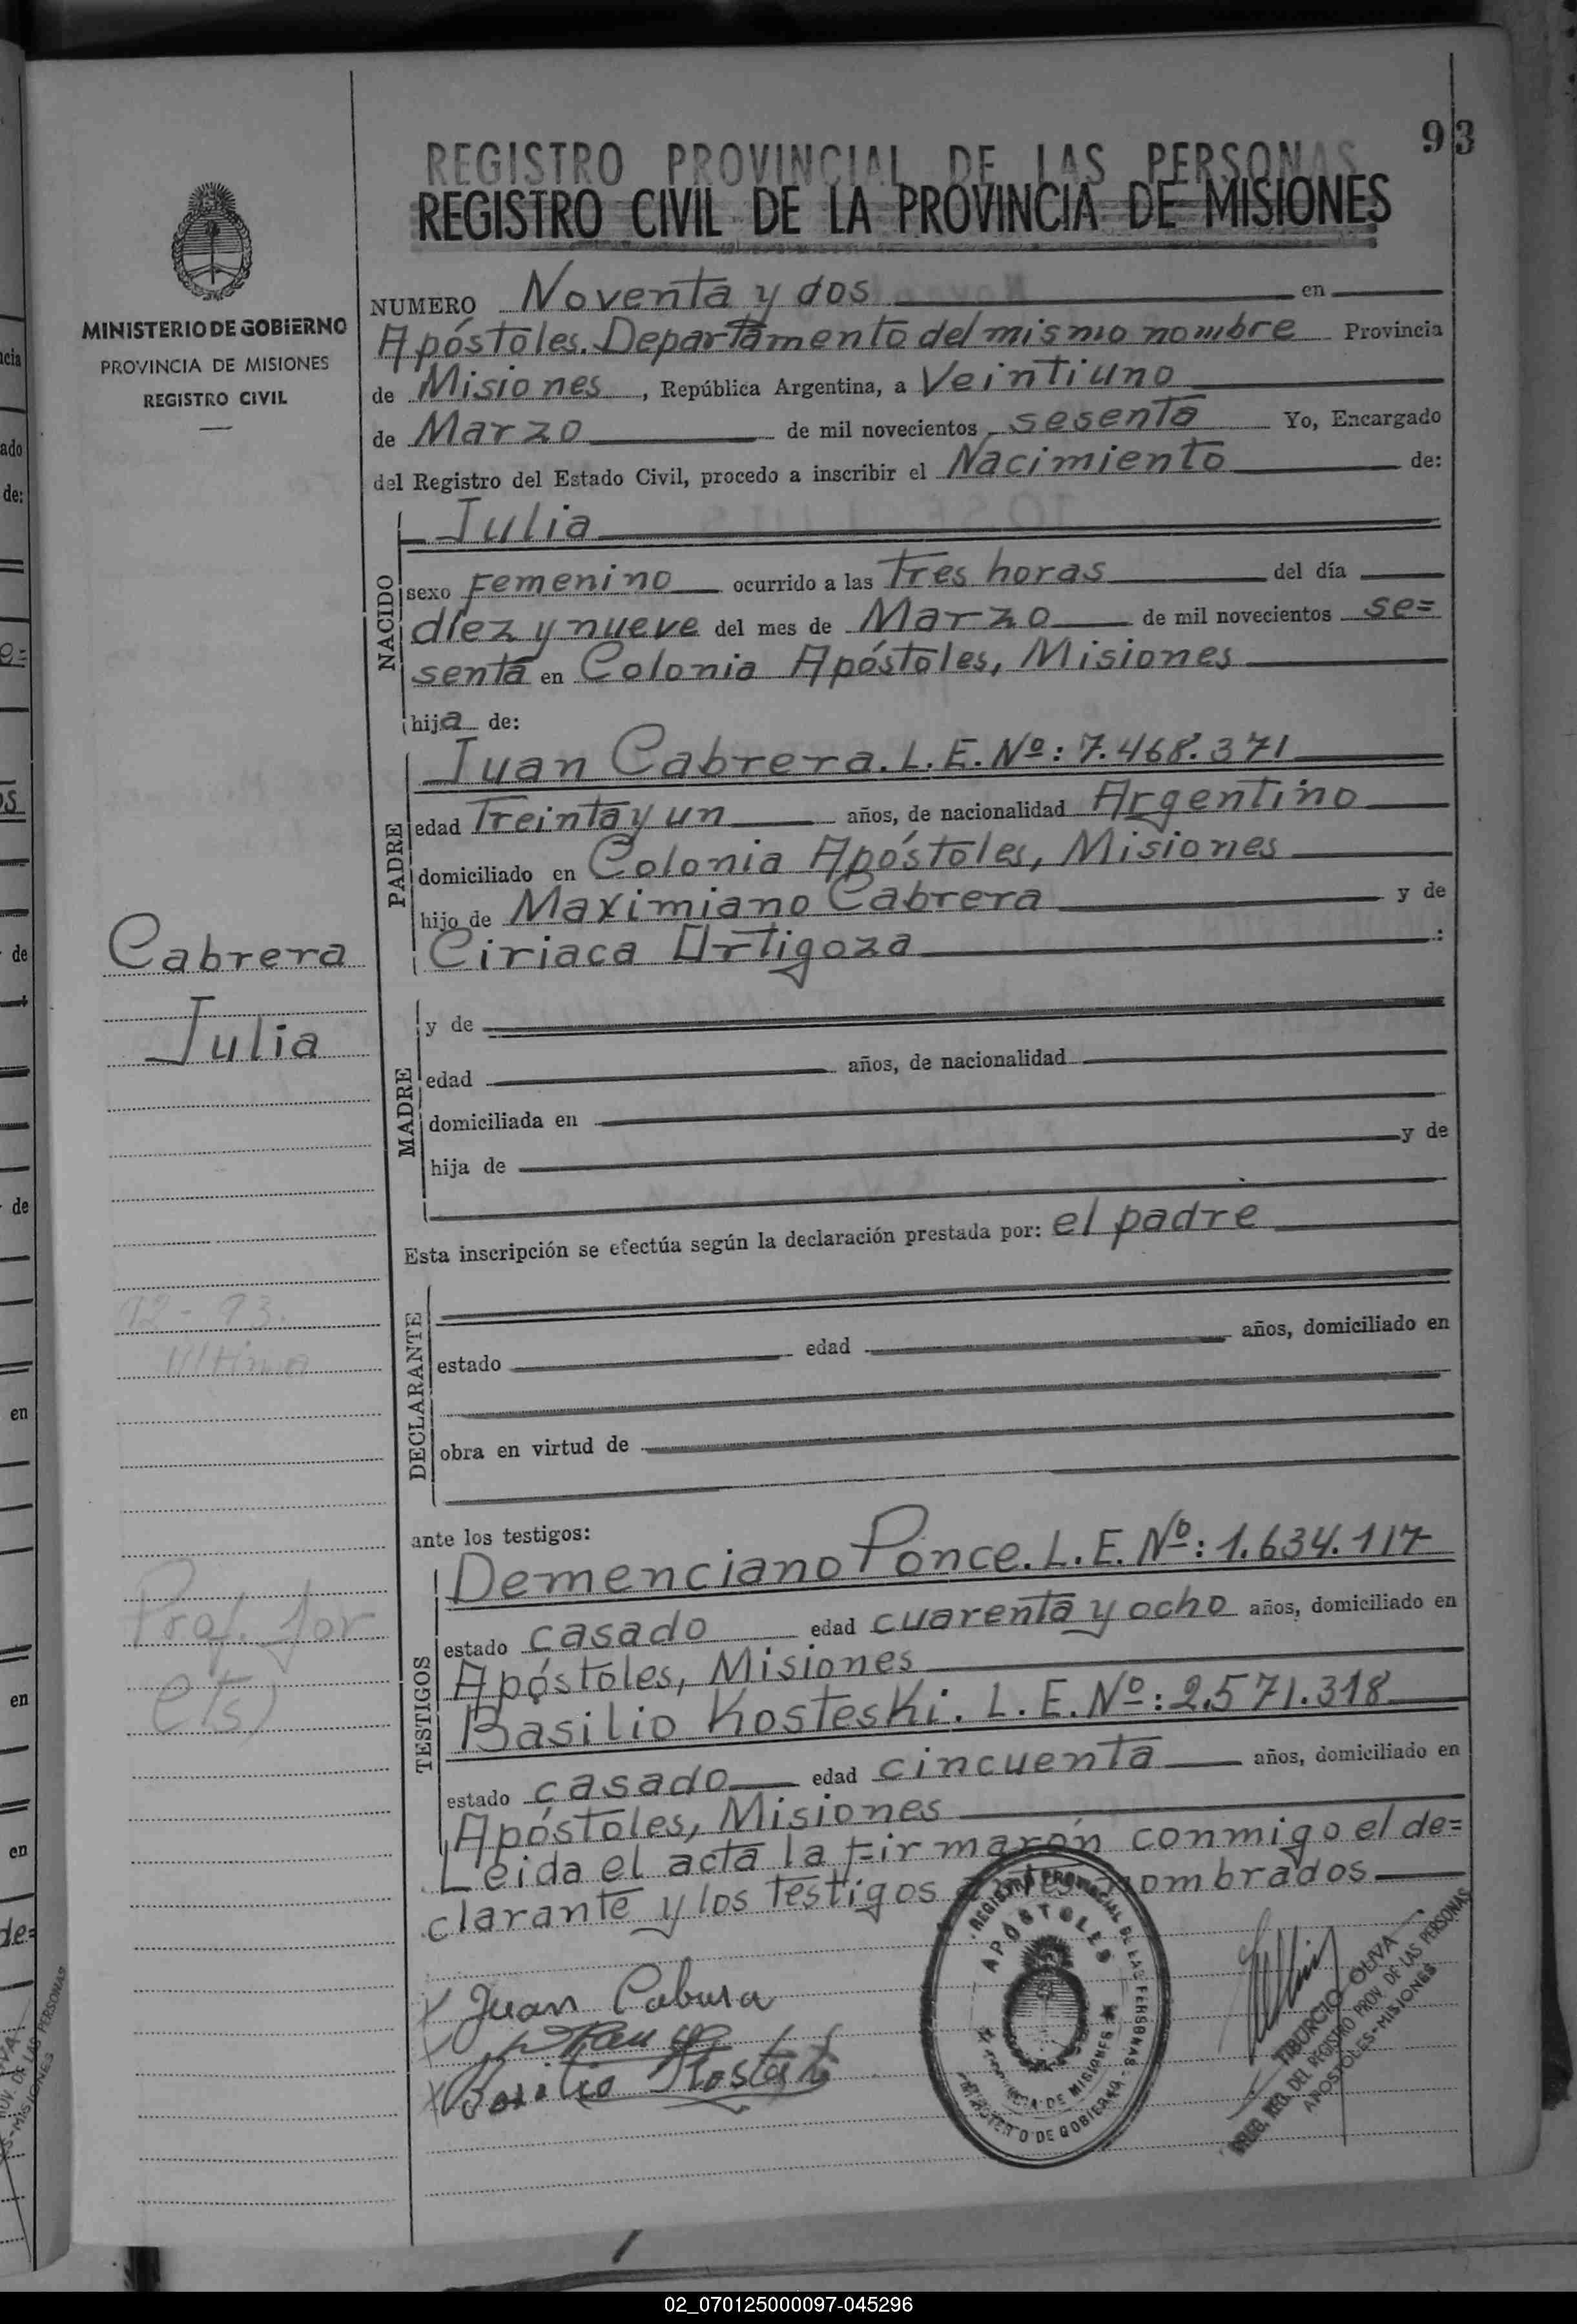 93
REGISTRO PROVINCIAL DE LAS PERSONAS
REGISTRO CIVIL DE LA PROVINCIA DE MISIONES
MINISTERIO DE GOBIERNO
PROVINCIA DE MISIONES
REGISTRO CIVIL
NUMERO Noventa y dos en
Apóstoles. Departamento del mismo nombre Provincia
de Misiones, República Argentina, a Veintiuno
de Marzo de mil novecientos sesenta Yo, Encargado
del Registro del Estado Civil, procedo a inscribir el Nacimiento de:
NACIDO
Julia
sexo Femenino ocurrido a las Tres horas del día
diez y nueve del mes de Marzo de mil novecientos se=
senta en Colonia Apóstoles, Misiones
hija de:
PADRE
Juan Cabrera. L. E. Nº: 7.468.371
edad Treinta y un años, de nacionalidad Argentino
domiciliado en Colonia Apóstoles, Misiones
hijo de Maximiano Cabrera y de
Ciriaca Ortigoza :
Cabrera
Julia
MADRE
y de
edad años, de nacionalidad
domiciliada en
hija de y de
Esta inscripción se efectúa según la declaración prestada por: el padre
DECLARANTE
estado edad años, domiciliado en
obra en virtud de
92-93.
Ultima
ante los testigos:
TESTIGOS
Demenciano Ponce. L. E. Nº: 1.634.117
estado casado edad cuarenta y ocho años, domiciliado en
Apóstoles, Misiones
Basilio Kosteski. L. E. Nº: 2.571.318
estado casado edad cincuenta años, domiciliado en
Apóstoles, Misiones
Leida el acta la firmarón conmigo el de=
clarante y los testigos antes nombrados
Juan Cabrera
Basilio Kosteski
REGISTRO PROVINCIAL DE LAS PERSONAS
APÓSTOLES
PROVINCIA DE MISIONES
MINISTERIO DE GOBIERNO
TIBURCIO OLIVA
ENC. REG. DEL REGISTRO PROV. DE LAS PERSONAS
APOSTOLES - MISIONES
02_070125000097-045296